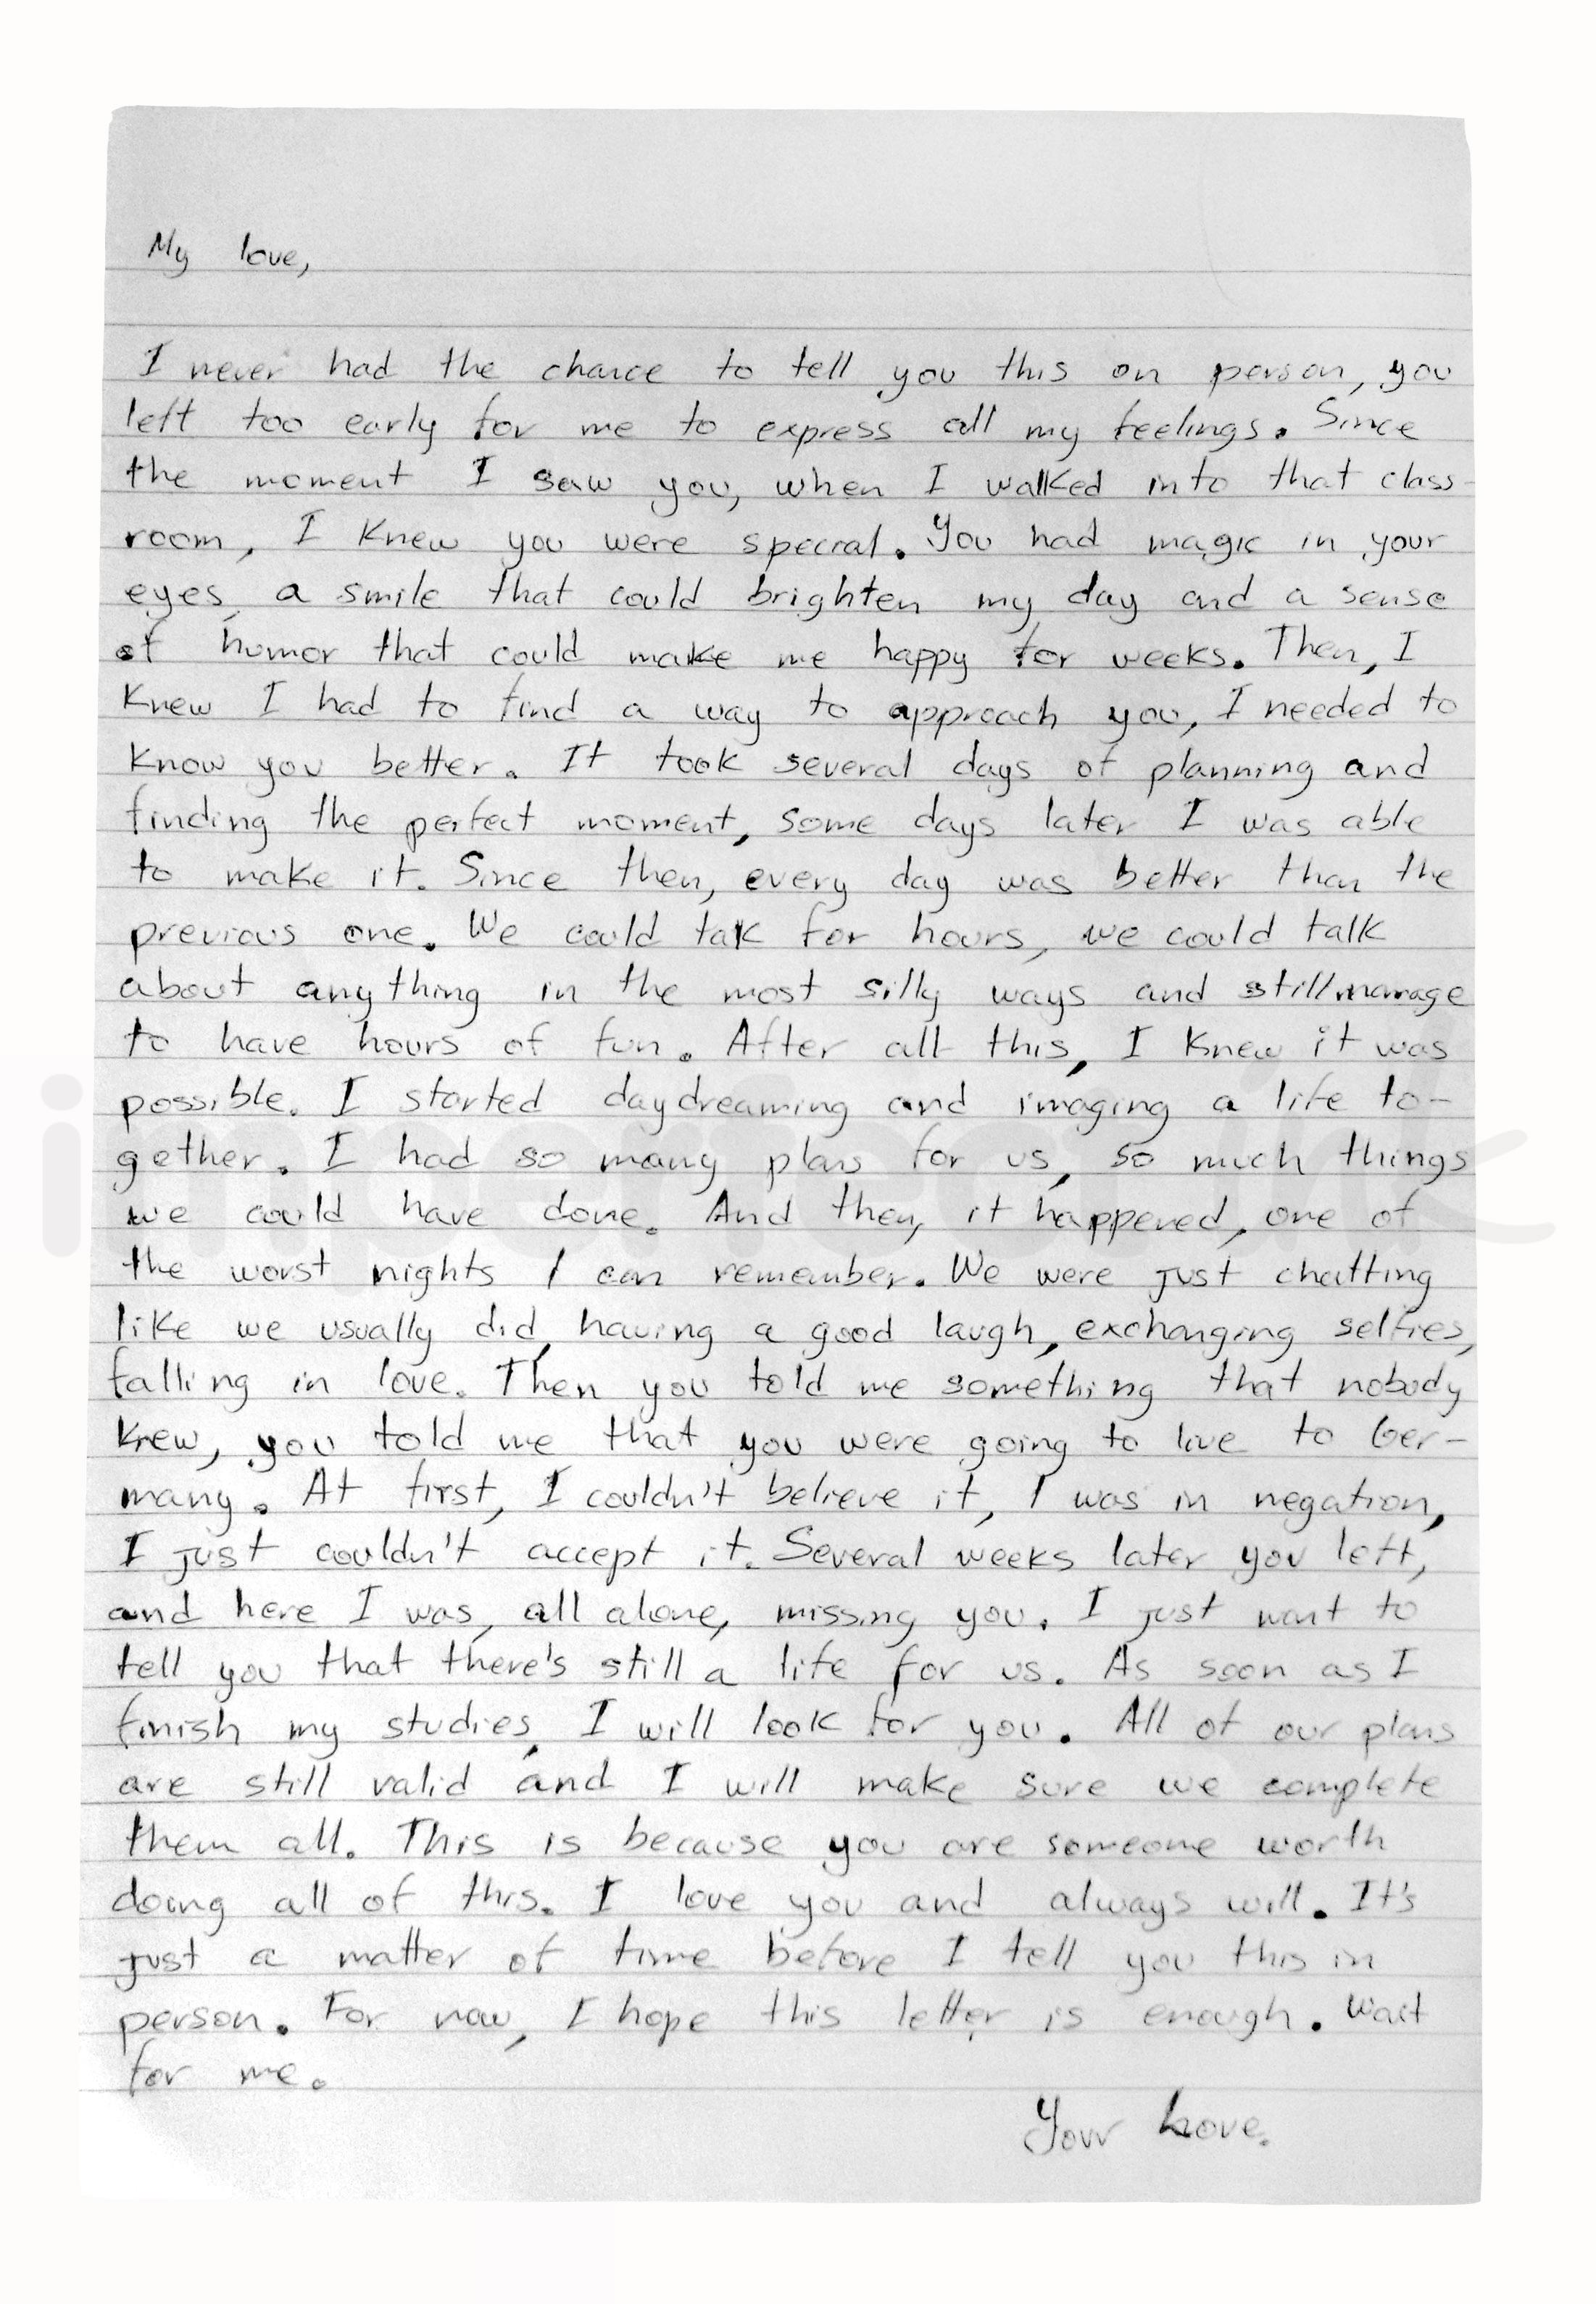 My love,
I never had the chance to tell you this on person, you
left too early for me to express all my feelings. Since
the moment I saw you, when I walked into that class-
room, I knew you were special. You had magic in your
eyes, a smile that could brighten my day and a sense
of humor that could make me happy for weeks. Then, I
knew I had to find a way to approach you, I needed to
know you better. It took several days of planning and
finding the perfect moment, some days later I was able
to make it. Since then, every day was better than the
previous one. We could talk for hours, we could talk
about anything in the most silly ways and still manage
to have hours of fun. After all this, I knew it was
possible. I started daydreaming and imaging a life to-
gether. I had so many plans for us, so much things
we could have done. And then, it happened, one of
the worst nights I can remember. We were just chatting
like we usually did, having a good laugh, exchanging selfies,
falling in love. Then you told me something that nobody
knew, you told me that you were going to live to Ger-
many. At first, I couldn't believe it, I was in negation,
I just couldn't accept it. Several weeks later you left,
and here I was, all alone, missing you. I just want to
tell you that there's still a life for us. As soon as I
finish my studies, I will look for you. All of our plans
are still valid and I will make sure we complete
them all. This is because you are someone worth
doing all of this. I love you and always will. It's
just a matter of time before I tell you this in
person. For now, I hope this letter is enough. Wait
for me.
Your Love.